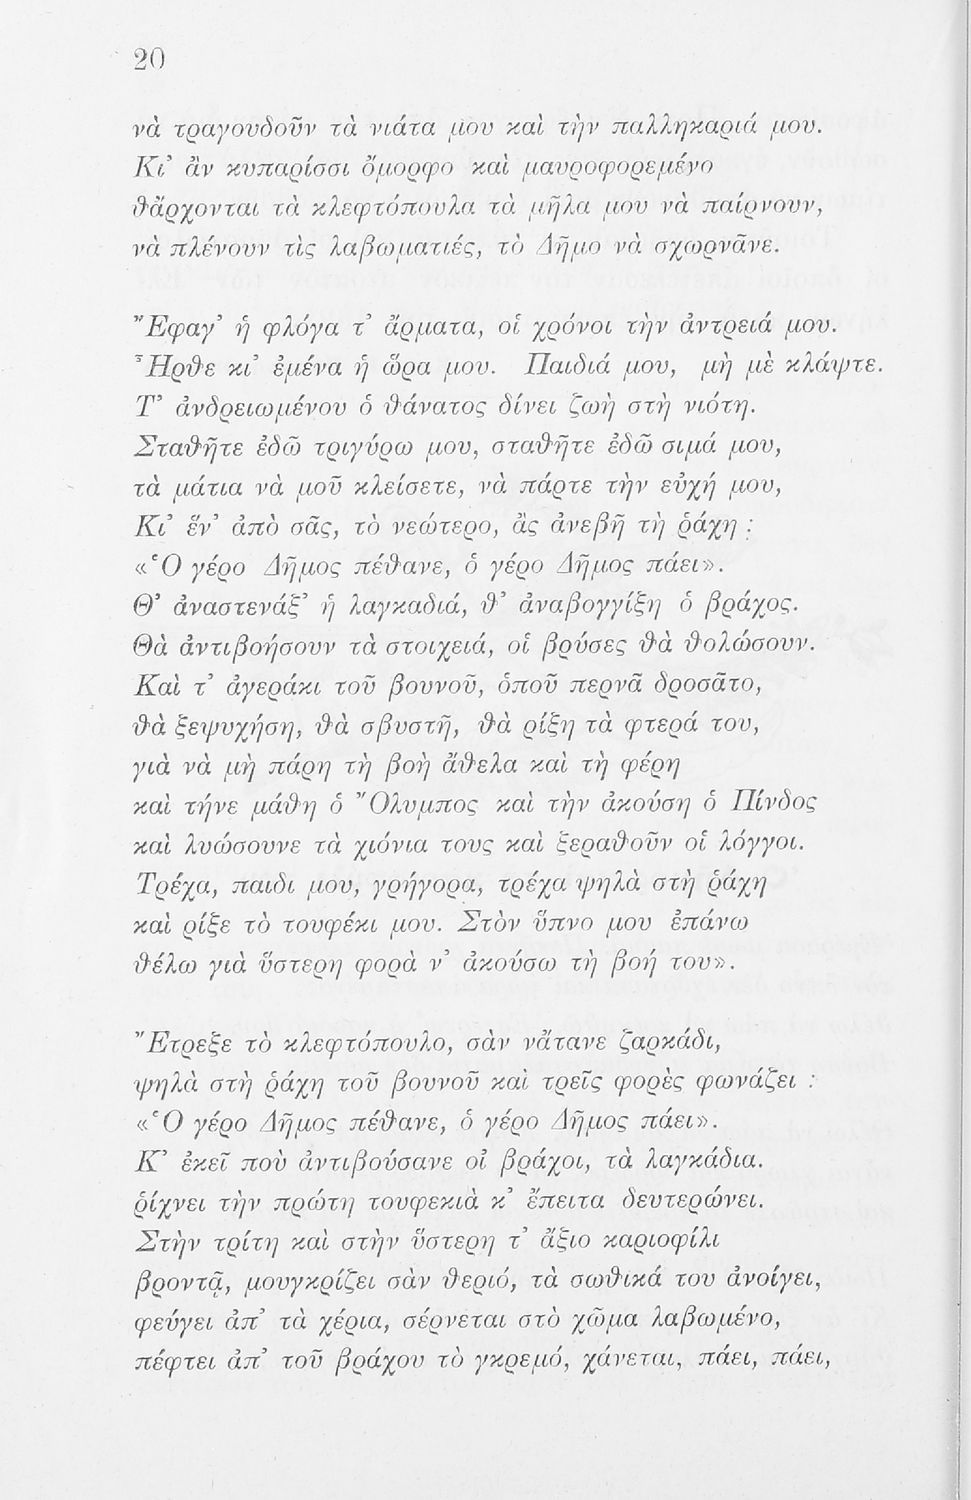 20
νὰ τραγουδοῦν τὰ νιάτα μου καὶ τὴν παλληκαριά μου.
Κι’ ἂν κυπαρίσσι ὄμορφο καὶ μαυροφορεμένο
θἄρχονται τὰ κλεφτόπουλα τὰ μῆλα μου νὰ παίρνουν,
νὰ πλένουν τὶς λαβωματιές, τὸ Δῆμο νὰ σχωρνᾶνε.

Ἔφαγ’ ἡ φλόγα τ’ ἄρματα, οἱ χρόνοι τὴν ἀντρειά μου.
Ἦρθε κι’ ἐμένα ἡ ὥρα μου. Παιδιά μου, μὴ μὲ κλάψτε.
Τ’ ἀνδρειωμένου ὁ θάνατος δίνει ζωὴ στὴ νιότη.
Σταθῆτε ἐδῶ τριγύρω μου, σταθῆτε ἐδῶ σιμά μου,
τὰ μάτια νὰ μοῦ κλείσετε, νὰ πάρτε τὴν εὐχή μου,
Κι’ ἕν’ ἀπὸ σᾶς, τὸ νεώτερο, ἂς ἀνεβῆ τὴ ῥάχη :
«Ὁ γέρο Δῆμος πέθανε, ὁ γέρο Δῆμος πάει».
Θ’ ἀναστενάξ’ ἡ λαγκαδιά, θ’ ἀναβογγίξη ὁ βράχος.
Θὰ ἀντιβοήσουν τὰ στοιχειά, οἱ βρύσες θὰ θολώσουν.
Καὶ τ’ ἀγεράκι τοῦ βουνοῦ, ὁποῦ περνᾶ δροσᾶτο,
θὰ ξεψυχήση, θὰ σβυστῆ, θὰ ρίξη τὰ φτερά του,
γιὰ νὰ μὴ πάρη τὴ βοὴ ἄθελα καὶ τὴ φέρη
καὶ τήνε μάθη ὁ Ὄλυμπος καὶ τὴν ἀκούση ὁ Πίνδος
καὶ λυώσουνε τὰ χιόνια τους καὶ ξεραθοῦν οἱ λόγγοι.
Τρέχα, παιδι μου, γρήγορα, τρέχα ψηλὰ στὴ ῥάχη
καὶ ρίξε τὸ τουφέκι μου. Στὸν ὕπνο μου ἐπάνω
θέλω γιὰ ὕστερη φορὰ ν’ ἀκούσω τὴ βοή του».

Ἔτρεξε τὸ κλεφτόπουλο, σὰν νἄτανε ζαρκάδι,
ψηλὰ στὴ ῥάχη τοῦ βουνοῦ καὶ τρεῖς φορὲς φωνάζει :
«Ὁ γέρο Δῆμος πέθανε, ὁ γέρο Δῆμος πάει».
Κ’ ἐκεῖ ποὺ ἀντιβούσανε οἱ βράχοι, τὰ λαγκάδια.
ῥίχνει τὴν πρώτη τουφεκιὰ κ’ ἔπειτα δευτερώνει.
Στὴν τρίτη καὶ στὴν ὕστερη τ’ ἄξιο καριοφίλι
βροντᾷ, μουγκρίζει σὰν θεριό, τὰ σωθικά του ἀνοίγει,
φεύγει ἀπ’ τὰ χέρια, σέρνεται στὸ χῶμα λαβωμένο,
πέφτει ἀπ’ τοῦ βράχου τὸ γκρεμό, χάνεται, πάει, πάει,